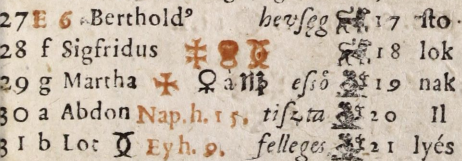 27 E 6 Berthold⁹ hevſęg 17 ſto
28 f Sigfridus 18 lok
29 g Martha ☩ ♀ à ♍ eſső 19 nak
30 a Abdon Nap. h. 15. tiſzta 20 Il
31 b Lot Ey h. 9. felleges 21 lyés